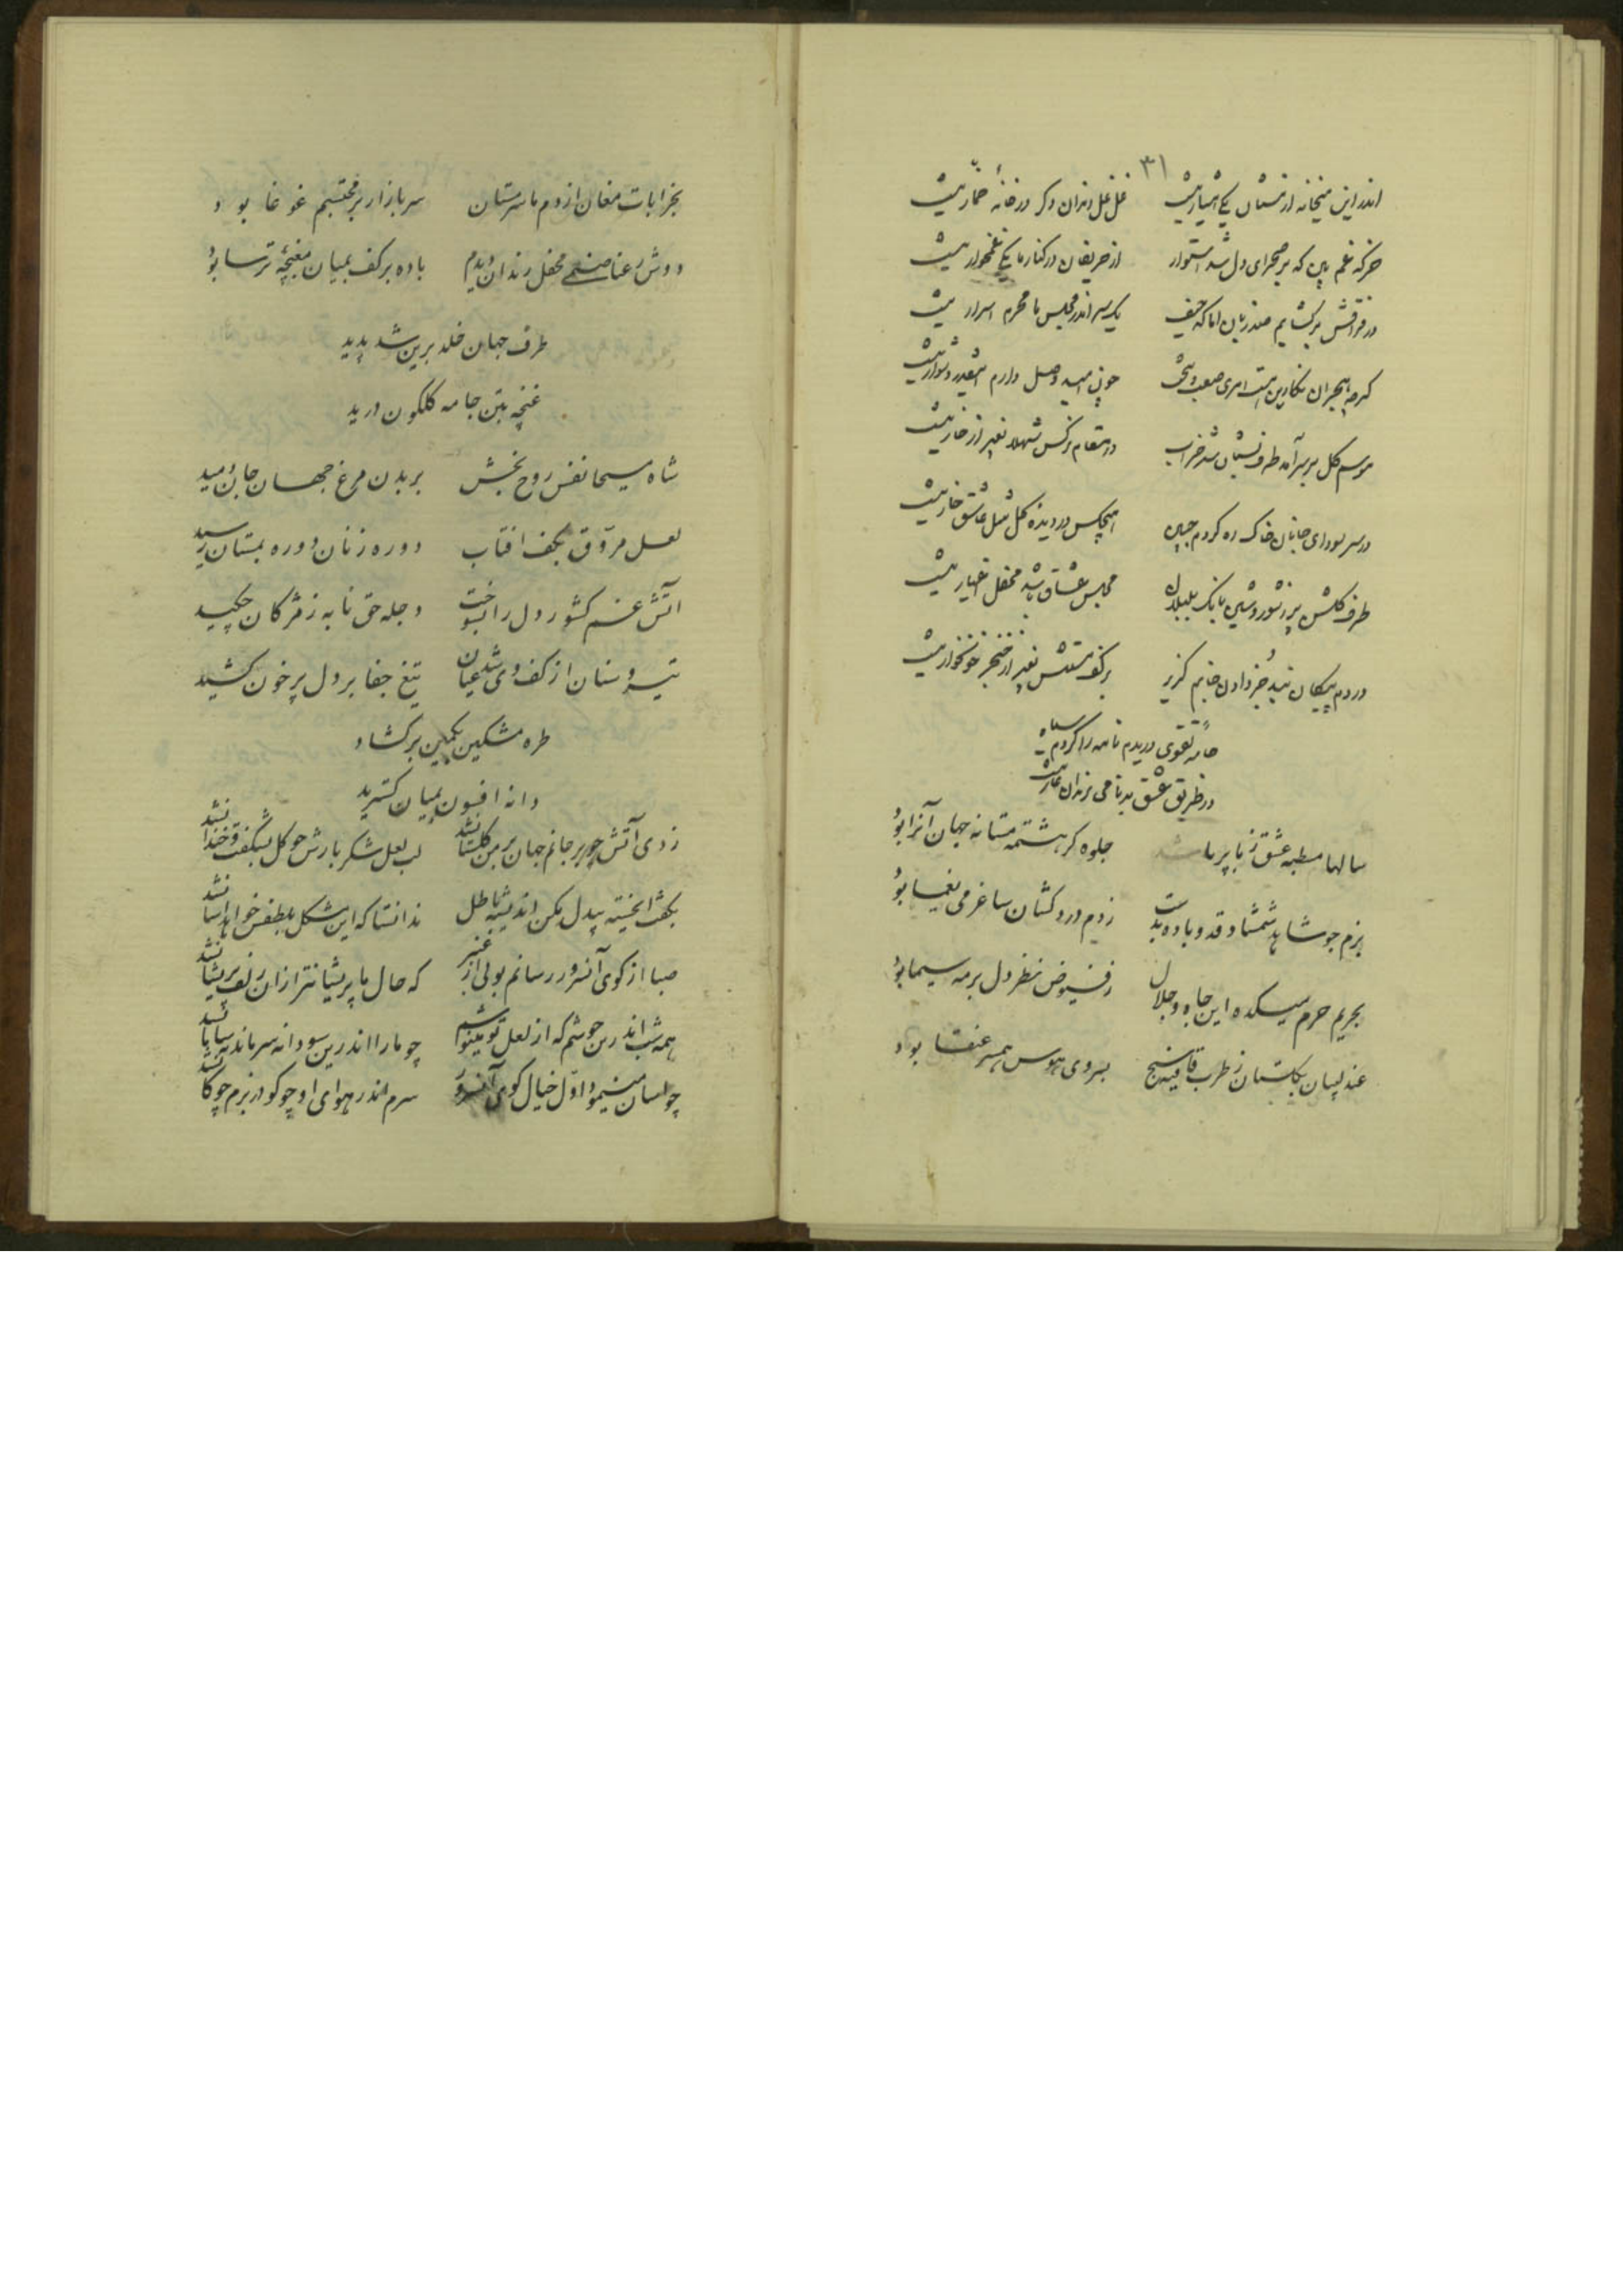 ۳۱
اندر این میخانه از مستان یکی هشیار نیست غلغل رندان دگر در خانهٔ خمّار نیست
خرگه غم بین که بر صحرای دل شد استوار از حریفان در کنار ما یکی غمخوار نیست
در فراقش برگشایم صد زبان اما که حیف یک سر اندر مجلس ما محرم اسرار نیست
گرچه هجران نگارین است امری صعب و سخت چون امید وصل دارم اینقدر دشوار نیست
موسم گل بر سر آمد طرف بستان شد خراب در مقام نرگس شهلا بغیر از خار نیست
در سر سودای جانان خاک ره کردم جبین هیچکس در دیده گل مثل عاشق خار نیست
طرف گلشن پر ز شور و شین بانک بلبلان مجلس عشاق باشد محفل اغیار نیست
در دم پیکان نبد جز دادن جانم گزیر بر کف مستش بغیر از خنجر خونخوار نیست
جامهٔ تقوی دریدم نامه را کردم سیاه
در طریق عشق بدنامی رندان عار نیست
سالها مصطبه عشق ز پا بر ما جلوه گر هشتمه مستانه جهان آنرا بود
بزم جو شاهد شمشاد قد و باده بدست زدم دردکشان ساغر می یغما بود
بحریم حرم میکده این جاه و جلال ز فیوض نظر دل بر مه سیما بود
عندلیبان بگلستان ز طرب قافیه سنج بسروی هوس همسر عنقا بود
بخرابات مغان از دم ما سرمستان سر بازار پر محتسبم غوغا بود
دوش رعنا صنمی محفل رندان دیدم باده بر کف بمیان مغبچهٔ ترسا بود
طرف جهان خلد برین شد پدید
غنچه بتن جامه گلگون درید
شاه مسیحا نفس روح بخش بر بدن مرغ جهان جان دمید
لعل مروّق بکف افتاب دوره زنان دوره بمستان رسید
آتش غم کشور دل را بسوخت دجله حق نابه ز مژگان چکید
تیر و سنان از کف وی شد عیان تیغ جفا بر دل پر خون کشید
طره مشکین بکمین برگشاد
دانه افسون بمیان گسترید
زدی آتش چو بر جانم جهان بر من گلستان نشد لب لعل شکر بارش چو گل بشکفت و خندان نشد
بگفتا خسته بیدل مکن اندیشه باطل ندانستا که این مشکل بلطفش خواهد آسان نشد
صبا از کوی آنسرور رسانم بوئی از عنبر که حال ما پریشانتر از ان زلف پریشان نشد
همه شب اندرین جوشم که از لعل تو مینوشم چو ما را اندرین سودا نه سر ماند نه سامان نشد
چو اسان مینمود اوّل خیال کوی آنسرور سرم اندر هوای او چو گو در بزم چوگان نشد